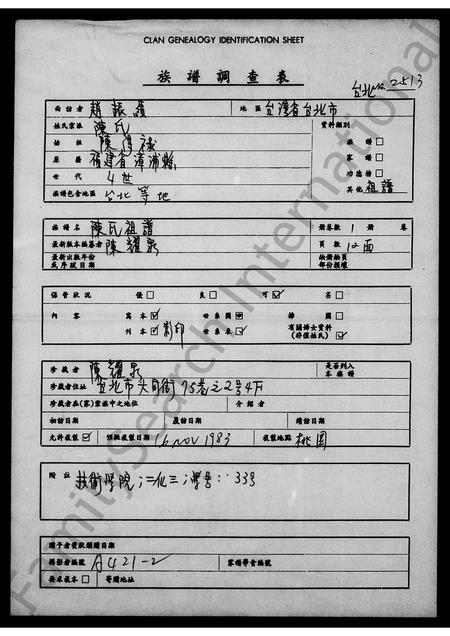 CLAN GENEALOGY IDENTIFICATION SHEET
族譜調查表
台北 No. 2513
面訪者 趙振績 地區 台灣省台北市
姓氏宗派 陳氏 資料類別
始祖 陳 祿 族譜 □
原籍 福建省漳浦縣 家譜 □
世代 4世 功德榜 □
族譜包含地區 台北等地 其他 祖譜
族譜名 陳氏祖譜 冊卷數 1 冊 卷
最新版本編纂者 陳耀泉 頁數 12面
最新出版年份
或序跋日期
缺冊缺頁
部份損壞
保管狀況 優 □ 良 □ 可 ☑ 劣 □
內容 寫本 ☑ 世系圖 插圖 □
刊本 影印 世系表 有關婦女資料
(非僅姓氏) ☑
珍藏者 陳耀泉 是否列入
本族譜
珍藏者住址 台北市 街75巷之2号4F
珍藏者在(家)宗族中之地位 介紹者
初訪日期 覆訪日期 續訪日期
允許複製 ☑ 預擬複製日期 16 NOV 1983 複製地點 桃園
附註 技術學院;二化三;學号: 338
關予者發狀頒贈日期
攝影者編號 A421-2 家譜學會編號
要求複本 □ 寄贈地址
FamilySearch International